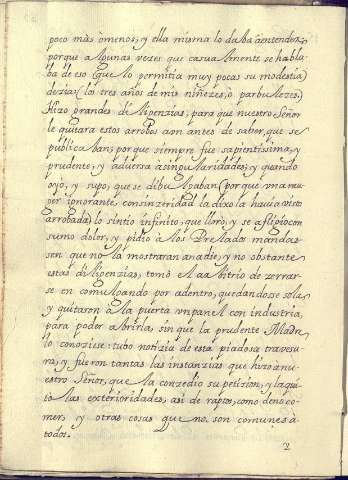 poco màs, òmenos, y ella misma lo daba àentender,
porque algunas vezes que casualmente se habla-
ba de eso (que lo permitia muy pocas su modestia)
dezia: (los tres años de mis niñezes, ò parbulezes.)
Hizo grandes diligenzias, para que nuestro Señor
le quitara estos arrobos aun antes de saber, que se
publicaban; porque siempre fue sapientissima, y
prudente, y adversa àsingularidades; y quando
oyò, y supo, que se dibulgaban (por que una mu-
ger ignorante, consinzeridad la dixo la havia visto
arrobada) lo sintio infinito, que llorò, y se afligiocon
sumo dolor, y pidiò à los Prelados mandas-
sen que no la mostraran ànadie; y no obstante
estas diligenzias, tomò el arbitrio de zerrar-
se en comulgando por adentro, quedandosse sola,
y quitaron à la puerta unpanel con industria,
para poder abrirla, sin que la prudente Madre
lo conoziese: tubo notizia de esta piadosa travesu-
ra, y fueron tantas las instanzias que hizo ànu-
estro Señor, que la conzedio su petizion, y laqui-
to las exterioridades, asi de raptos, como denoco-
mer, y otras cosas que no son comunes à
todos.
2